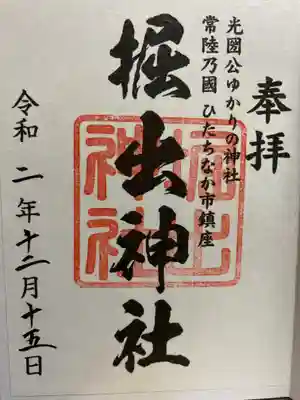 奉拝
光圀公ゆかりの神社
常陸乃國 ひたちなか市鎮座
掘出神社
令和二年十二月十五日